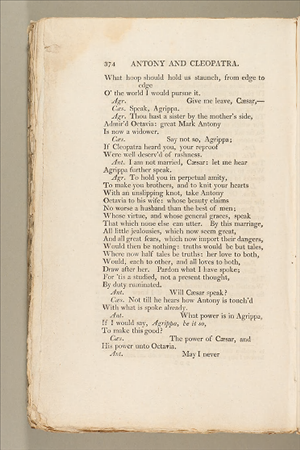 374 ANTONY AND CLEOPATRA.
What hoop should hold us staunch, from edge to
edge
O' the world I would pursue it.
Agr. Give me leave, Cæsar,—
Cæs. Speak, Agrippa.
Agr. Thou hast a sister by the mother's side,
Admir'd Octavia: great Mark Antony
Is now a widower.
Cæs. Say not so, Agrippa;
If Cleopatra heard you, your reproof
Were well deserv'd of rashness.
Ant. I am not married, Cæsar: let me hear
Agrippa further speak.
Agr. To hold you in perpetual amity,
To make you brothers, and to knit your hearts
With an unslipping knot, take Antony
Octavia to his wife: whose beauty claims
No worse a husband than the best of men;
Whose virtue, and whose general graces, speak
That which none else can utter. By this marriage,
All little jealousies, which now seem great,
And all great fears, which now import their dangers,
Would then be nothing: truths would be but tales,
Where now half tales be truths: her love to both,
Would, each to other, and all loves to both,
Draw after her. Pardon what I have spoke;
For 'tis a studied, not a present thought,
By duty ruminated.
Ant. Will Cæsar speak?
Cæs. Not till he hears how Antony is touch'd
With what is spoke already.
Ant. What power is in Agrippa,
If I would say, Agrippa, be it so,
To make this good?
Cæs. The power of Cæsar, and
His power unto Octavia.
Ant. May I never